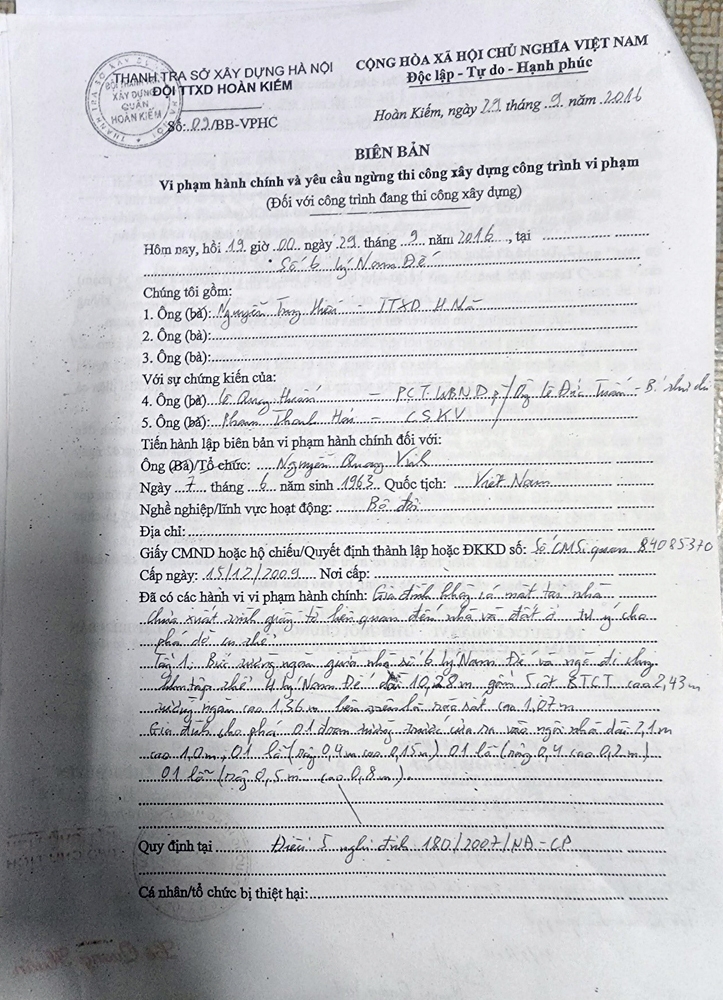 THANH TRA SỞ XÂY DỰNG HÀ NỘI
ĐỘI TTXD HOÀN KIẾM
XÂY DỰNG
QUẬN
HOÀN KIẾM
Số:..02./BB-VPHC
CỘNG HÒA XÃ HỘI CHỦ NGHĨA VIỆT NAM
Độc lập - Tự do - Hạnh phúc
Hoàn Kiếm, ngày 29 tháng .9. năm .2016
BIÊN BẢN
Vi phạm hành chính và yêu cầu ngừng thi công xây dựng công trình vi phạm
(Đối với công trình đang thi công xây dựng)
Hôm nay, hồi 19 giờ .00. ngày 29. tháng ..9.. năm 2016.., tại
Số 6 Lý Nam Đế
Chúng tôi gồm:
1. Ông (bà): Nguyễn Trung - TTXD H.
2. Ông (bà):
3. Ông (bà):
Với sự chứng kiến của:
4. Ông (bà) Lê Quang - P.C.T. UBND.p / Ông Lê Đức Tuấn - Bí thư chi
5. Ông (bà): Phạm Thanh - CSKV
Tiến hành lập biên bản vi phạm hành chính đối với:
Ông (Bà)/Tổ chức: Nguyễn Quang
Ngày ...7... tháng ...6... năm sinh .1963. Quốc tịch: Việt Nam
Nghề nghiệp/lĩnh vực hoạt động: Bộ đội
Địa chỉ:
Giấy CMND hoặc hộ chiếu/Quyết định thành lập hoặc ĐKKD số: Số CMSĩ quan 84085370
Cấp ngày: 15/12/2009 Nơi cấp:
Đã có các hành vi vi phạm hành chính: Gia đình không có mặt tại nhà
Chưa xuất trình giấy tờ liên quan đến nhà và đất ở tự ý cho
phá dỡ cụ thể:
Tại 1. Bức tường ngăn giữa nhà số 6 Lý Nam Đế và ngõ đi chung
khu tập thể 4 Lý Nam Đế dài 10,28m gồm 5 cột BTCT cao 2,43m
tường ngăn cao 1,36m bên trên là sắt cao 1,07m
Gia đình cho phá 01 đoạn tường trước cửa ra vào ngôi nhà dài 2,1m
cao 1,0m, 01 lỗ (rộng 0,4m cao 0,15m) 01 lỗ (rộng 0,4 cao 0,2m)
01 lỗ (rộng 0,5m cao 0,8m).
Quy định tại Điều 5 nghị định 180/2007/NĐ-CP
Cá nhân/tổ chức bị thiệt hại: